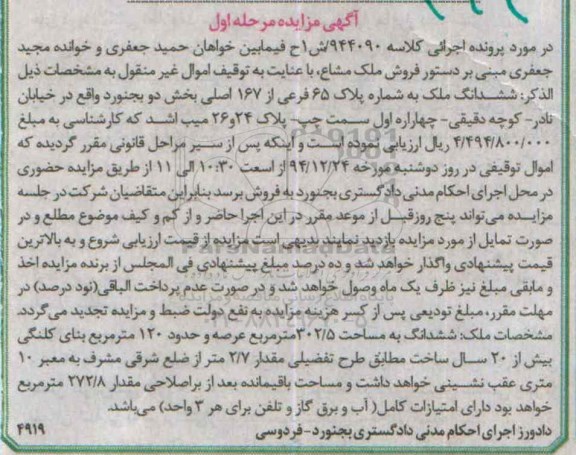 آگهی مزایده مرحله اول
در مورد پرونده اجرائی کلاسه ۹۴۴۰۹۰/ش۱ح فیمابین خواهان حمید جعفری و خوانده مجید
جعفری مبنی بر دستور فروش ملک مشاع، با عنایت به توقیف اموال غیر منقول به مشخصات ذیل
الذکر: ششدانگ ملک به شماره پلاک ۶۵ فرعی از ۱۶۷ اصلی بخش دو بجنورد واقع در خیابان
نادر- کوچه دقیقی- چهارراه اول سمت چپ- پلاک ۲۴و۲۶ میب اشد که کارشناسی به مبلغ
۴/۴۹۴/۸۰۰/۰۰۰ ریال ارزیابی نموده است و اینکه پس از سیر مراحل قانونی مقرر گردیده که
اموال توقیفی در روز دوشنبه مورخه ۹۴/۱۲/۲۴ از اسعت ۱۰:۳۰ الی ۱۱ از طریق مزایده حضوری
در محل اجرای احکام مدنی دادگستری بجنورد به فروش برسد بنابراین متقاضیان شرکت در جلسه
مزایده می‌تواند پنج روزقبل از موعد مقرر در این اجرا حاضر و از کم و کیف موضوع مطلع و در
صورت تمایل از مورد مزایده بازدید نمایند بدیهی است مزایده از قیمت ارزیابی شروع و به بالاترین
قیمت پیشنهادی واگذار خواهد شد و ده درصد مبلغ پیشنهادی فی المجلس از برنده مزایده اخذ
و مابقی مبلغ نیز ظرف یک ماه وصول خواهد شد و در صورت عدم پرداخت الباقی(نود درصد) در
مهلت مقرر، مبلغ تودیعی پس از کسر هزینه مزایده به نفع دولت ضبط و مزایده تجدید می‌گردد.
مشخصات ملک: ششدانگ به مساحت ۳۰۲/۵مترمربع عرصه و حدود ۱۲۰ مترمربع بنای کلنگی
بیش از ۲۰ سال ساخت مطابق طرح تفضیلی مقدار ۲/۷ متر از ضلع شرقی مشرف به معبر ۱۰
متری عقب نشینی خواهد داشت و مساحت باقیمانده بعد از براصلاحی مقدار ۲۷۲/۸ مترمربع
خواهد بود دارای امتیازات کامل( آب و برق گاز و تلفن برای هر ۳ واحد) می‌باشد.
دادورز اجرای احکام مدنی دادگستری بجنورد- فردوسی
۴۹۱۹